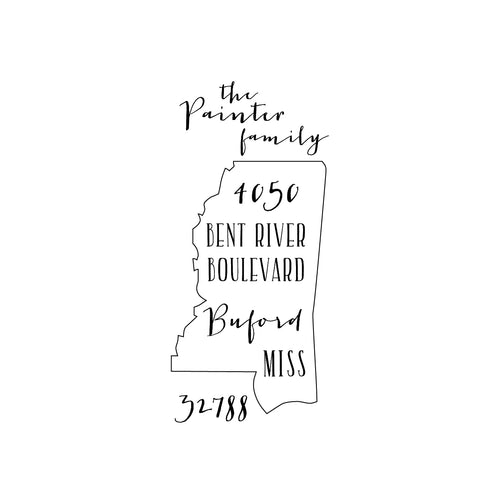 the
Painter
family
4050
BENT RIVER
BOULEVARD
Buford
MISS
32788